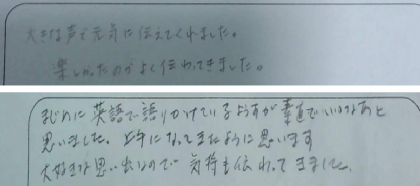 大きな声で元気に伝えてくれました。
楽しかったのがよく伝わってきました。
まじめに英語で語りかけているようすが素直でいいなあと
思いました。上手になってきたように思います
大好きな思い出なので気持も伝わってきました。